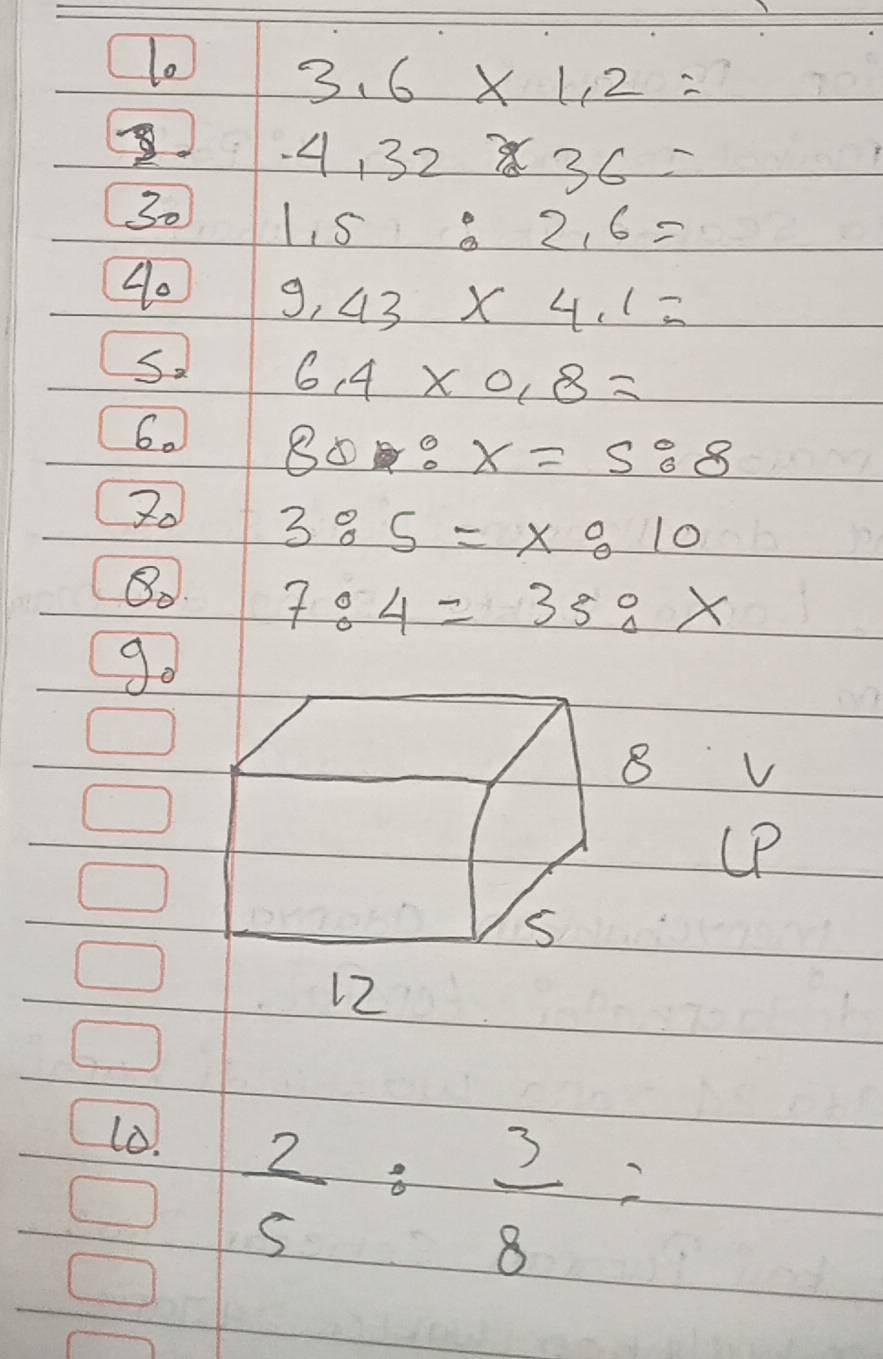 1. 3,6 x 1,2 =
2. 4,32 : 36 =
3. 1,5 : 2,6 =
4. 9,43 x 4,1 =
5. 6,4 x 0,8 =
6. 80 : x = 5 : 8
7. 3 : 5 = x : 10
8. 7 : 4 = 35 : x
9.
8 V
LP
5
12
10. 2/5 : 3/8 =